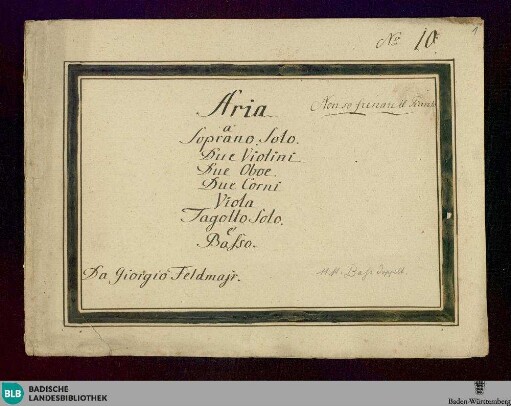 No 10.
1
Aria
Non so
a
Soprano Solo.
Due Violini
Due Oboe.
Due Corni
Viola
Fagotto Solo.
e
Basso.
Da Giorgio Feldmajr.
Bass doppelt.
BLB
BADISCHE
LANDESBIBLIOTHEK
Baden-Württemberg